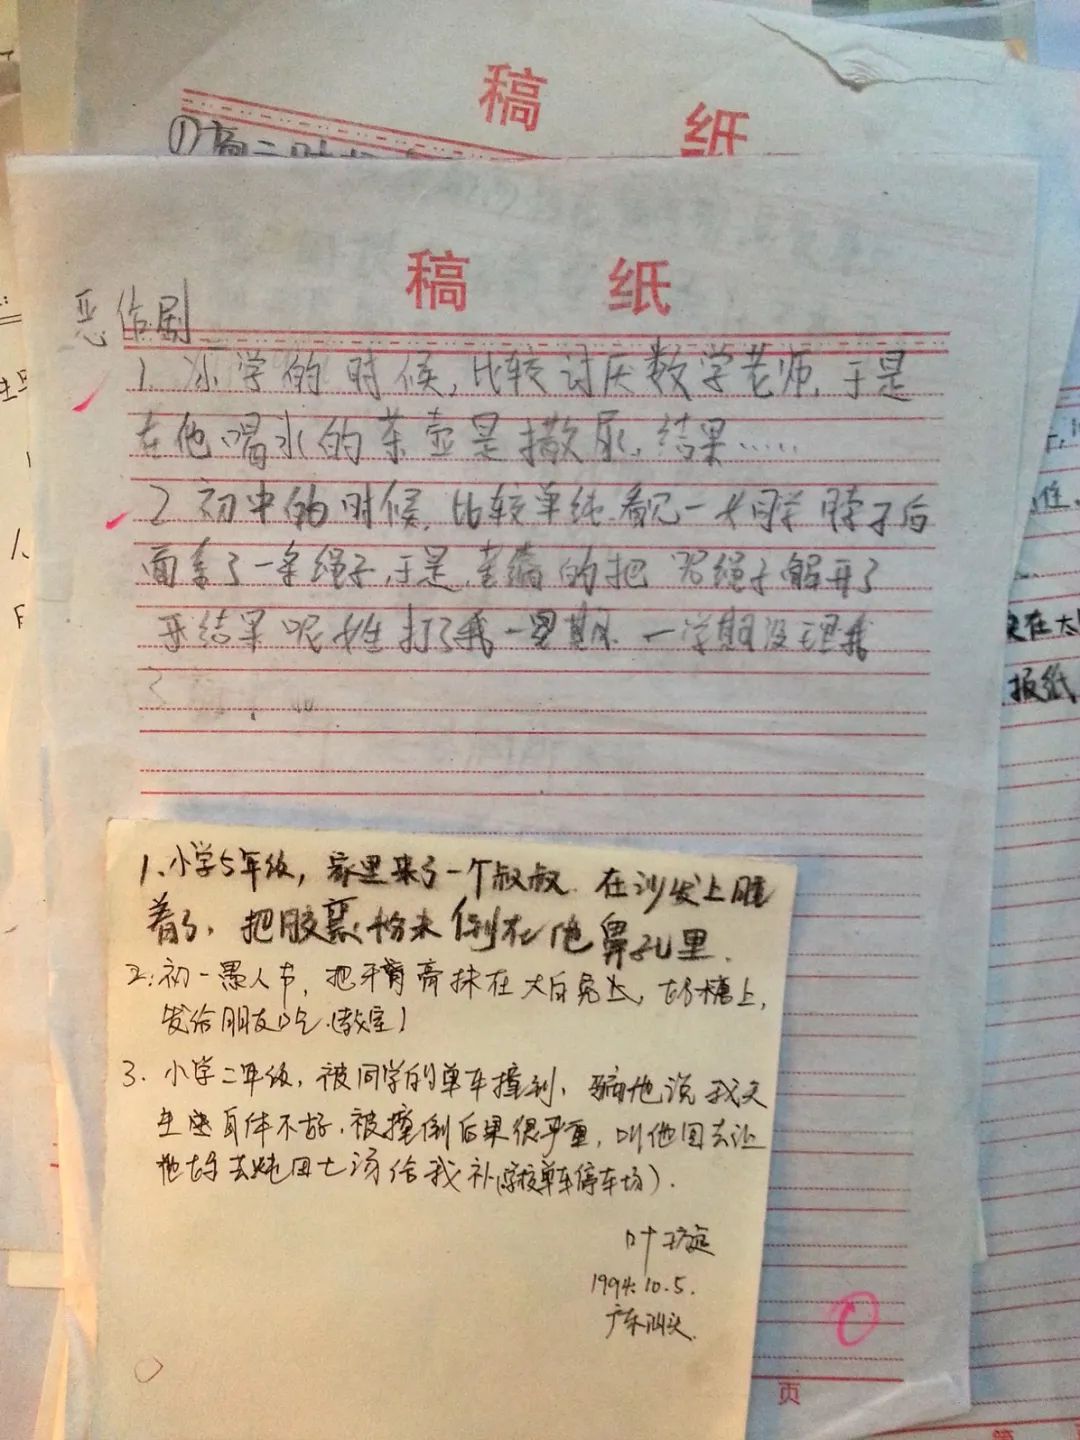 稿 纸
①高二时
稿 纸
恶作剧
1. 小学的时候,比较讨厌数学老师,于是
在他喝水的茶壶里撒尿,结果……
2 初中的时候,比较单纯,看见一女同学脖子后
面 了一条绳子,于是, 的把 绳子解开了
结果 女生打了我一星期,一学期没理我
1、小学5年级,家里来了一个叔叔.在沙发上睡
着了,把胶囊粉末倒在他鼻孔里.
2:初一愚人节,把牙膏抹在大白兔奶糖上,
发给朋友吃.(教室)
3.小学二年级,被同学的单车撞到,骗他说我天
生 身体不好.被撞倒后果很严重,叫他回去让
他妈去炖 汤给我补(学校单车停车场).
叶璇
1994.10.5.
广东汕头.
在太
报纸
页